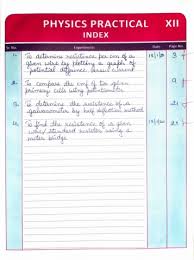 PHYSICS PRACTICAL XII
INDEX
Sr. No. Experiments Date Page No.
1. To determine resistance per cm of a
given wire by plotting a graph of
potential difference versus current
2. To compare the emf of two given
primary cells using potentiometer
3. To determine the resistance of a
galvanometer by half deflection method
4. To find the resistance of a given
wire / standard resistor using a
meter bridge